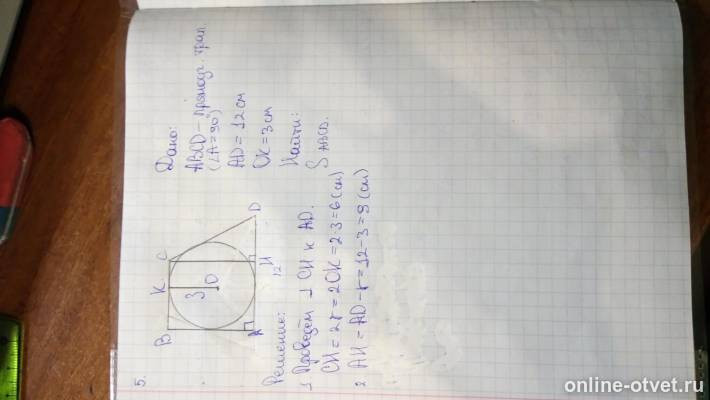 5.
B K C
3 O
A 12 H D
Дано:
ABCD – прямоуг. трап
(∠A=90°)
AD = 12 см
OK = 3 см
Найти:
S ABCD.
Решение:
1. Проведём ⊥ CH к AD.
CH = 2r = 2OK = 2·3 = 6 (см)
2 AH = AD – r = 12 – 3 = 9 (см)
online-otvet.ru